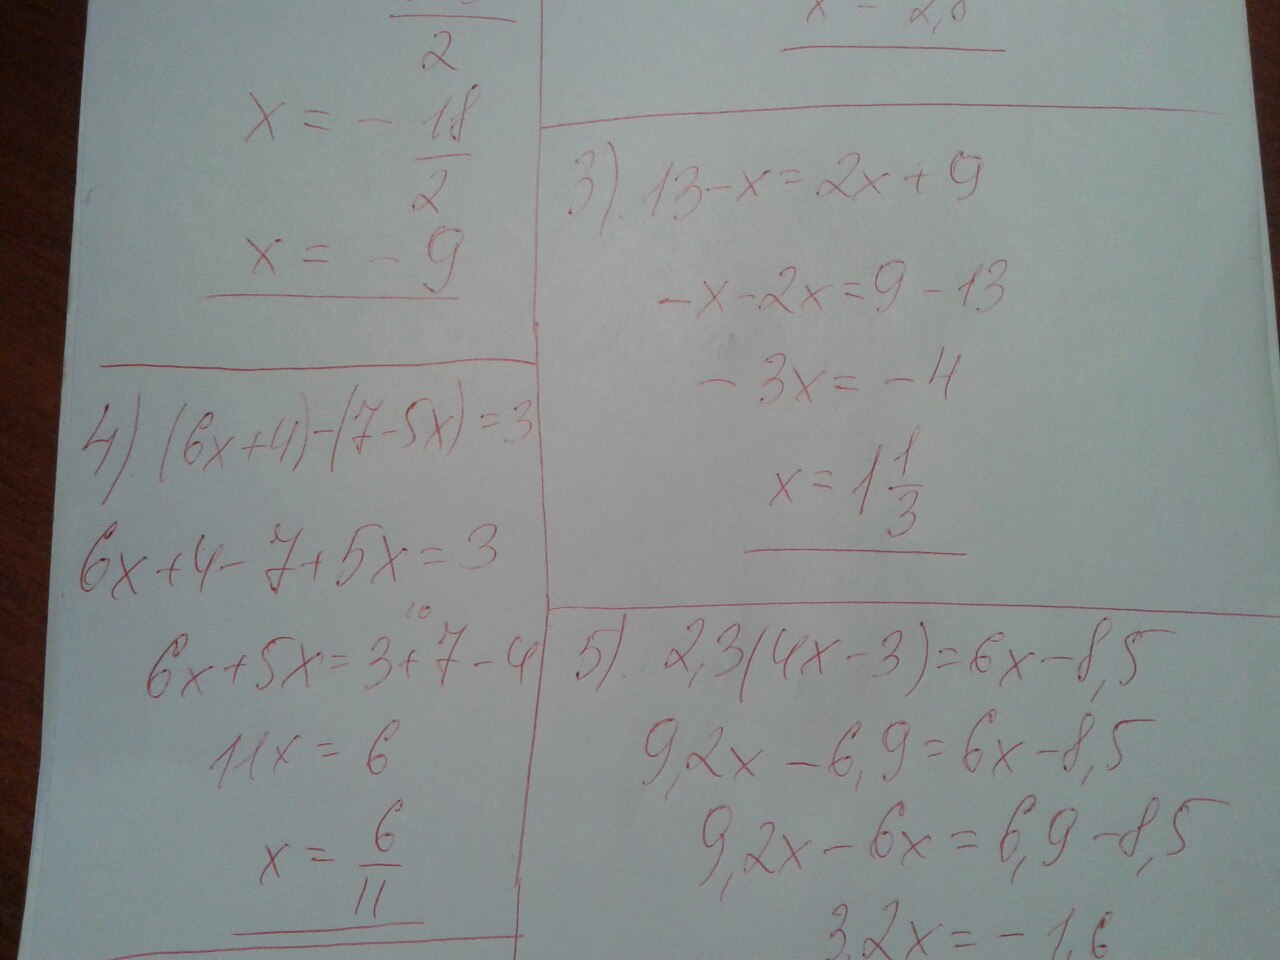 2
x = - 18/2
x = - 9
x - 2,8
3). 13-x=2x+9
-x-2x=9-13
-3x=-4
x=1 1/3
4). (6x+4)-(7-5x)=3
6x+4-7+5x=3
10
6x+5x=3+7-4
11x=6
x= 6/11
5). 2,3(4x-3)=6x-8,5
9,2x-6,9=6x-8,5
9,2x-6x=6,9-8,5
3,2x=-1,6